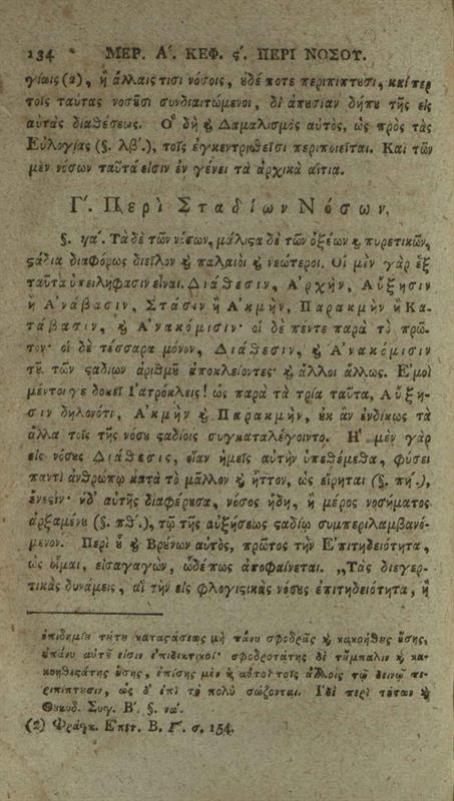 134 ΜΕΡ. Α΄. ΚΕΦ. ϛ΄. ΠΕΡΙ ΝΟΣΟΥ.
γίαις (2), ἢ ἄλλαις τισὶ νόσοις, ȣ̓δέ ποτε περιπίπτȣσι, καίπερ
τοῖς ταύτας νοσȣ͂σι συνδιαιτώμενοι, δι' ἀπȣσίαν δήπȣ τῆς εἰς
αὐτὰς διαθέσεως. Ὁ δὴ ϗ Δαμαλισμὸς αὐτὸς, ὡς πρὸς τὰς
Εὐλογίας (§. λβ΄.), τοῖς ἐγκεντρισθεῖσι περιποιεῖται. Καὶ τῶν
μὲν νόσων ταῦτά εἰσιν ἐν γένει τὰ ἀρχικὰ αἴτια.
Γ΄. Περὶ Σταδίων Νόσων.
§. ϟα΄. Τὰ δὲ τῶν νόσων, μάλιϛα δὲ τῶν ὀξέων ϗ πυρετικῶν,
ϛάδια διαφόρως διεῖλον ϗ παλαιοὶ ϗ νεώτεροι. Οἱ μὲν γὰρ ἓξ
ταῦτα ὑπειλήφασιν εἶναι. Διάθεσιν, Ἀρχὴν, Αὔξησιν
ἢ Ἀνάβασιν, Στάσιν ἢ Ἀκμὴν, Παρακμὴν ἢ Κα-
τάβασιν, ϗ Ἀνακόμισιν· οἱ δὲ πέντε παρὰ τὸ πρῶ-
τον· οἱ δὲ τέσσαρα μόνον, Διάθεσιν, ϗ Ἀνακόμισιν
τȣ͂ τῶν ϛαδίων ἀριθμȣ͂ ἀποκλείοντες· ϗ ἄλλοι ἄλλως. Ἐμοὶ
μέντοι γε δοκεῖ Ἰατρόκλεις! ὡς παρὰ τὰ τρία ταῦτα, Αὔξη-
σιν δηλονότι, Ἀκμὴν ϗ Παρακμὴν, ȣ̓κ ἂν ἐνδίκως τὰ
ἄλλα τοῖς τῆς νόσȣ ϛαδίοις συγκαταλέγοιντο. Ἡ μὲν γὰρ
εἰς νόσȣς Διάθεσις, οἵαν ἡμεῖς αὐτὴν ὑπεθέμεθα, φύσει
παντὶ ἀνθρώπῳ κατὰ τὸ μᾶλλον ϗ ἧττον, ὡς εἴρηται (§. πή.),
ἔνεϛιν· ἡ δ' αὐτῆς διαφέρȣσα, νόσος ἤδη, ἢ μέρος νοσήματος
ἀρξαμένȣ (§. πθ΄.), τῷ τῆς αὐξήσεως ϛαδίῳ συμπεριλαμβανό-
μενον. Περὶ ȣ͗ ϗ Βρύνων αὐτὸς, πρῶτος τὴν Ἐπιτηδειότητα,
ὡς οἶμαι, εἰσαγαγὼν, ὡδέπως ἀποφαίνεται. „Τὰς διεγερ-
τικὰς δυνάμεις, αἳ τὴν εἰς φλογιϛικὰς νόσȣς ἐπιτηδειότητα, ἢ
ἐπιδημίȣ τύτȣ καταϛάσεως μὴ πάνυ σφοδρᾶς ϗ κακοήθȣς ȣ̓́σης,
αὐτȣ͂ εἰσιν ἐπιδεκτικοί· σφοδροτάτης δὲ τȣ̓́μπαλιν ϗ κα-
κοηθεϛάτης ȣ̓́σης, ἐπίσης μὲν ϗ αὐτοὶ τοῖς ἄλλοις τῷ δεινῷ πε-
ριπίπτȣσιν, ὡς δ' ἐπὶ τὸ πολὺ σώζονται. Ἰδὲ περὶ τȣ́των ϗ
Θȣκυδ. Συγγ. Β΄. §. να΄.
(2) Φράγκ. Ἐπιτ. Β. Γ΄. σ. 154.